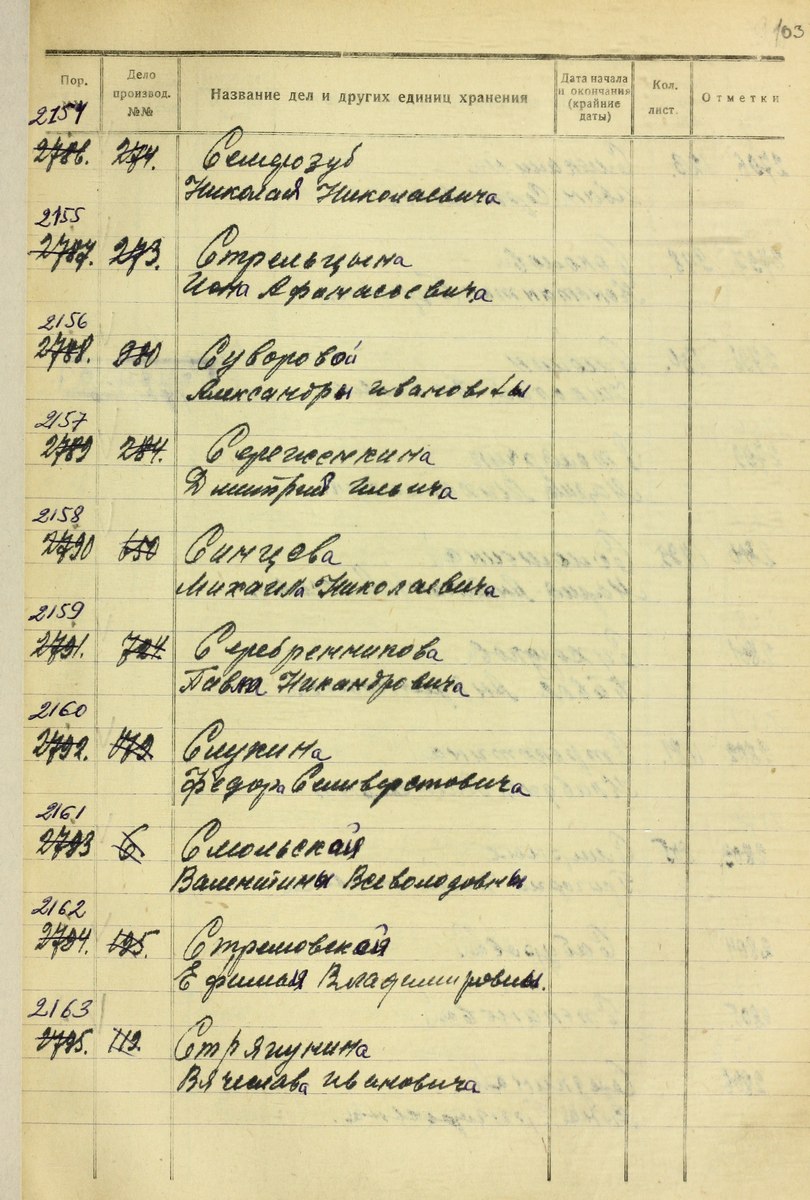 103
Пор. Дело производ. №№ Название дел и других единиц хранения Дата начала и окончания (крайние даты) Кол. лист. Отметки
2154
2786. 274. Семрозуб
Николая Николаевича
2155
2787. 273. Стрельцына
Иона Афанасоевича
2156
2788. 280 Суворовой
Александры Ивановны
2157
2789 284. Сереженкина
Дмитрия Ильича
2158
2790 650 Синцова
Михаила Николаевича
2159
2791. 724. Серебренникова
Павла Никандровича
2160
2792. 179. Слукина
Федора Селиверстовича
2161
2793 6. Смольской
Валентины Всеволодовны
2162
2794. 195. Стремовской
Владимировны.
2163
2795. 112. Стрягунина
Вячеслава Ивановича